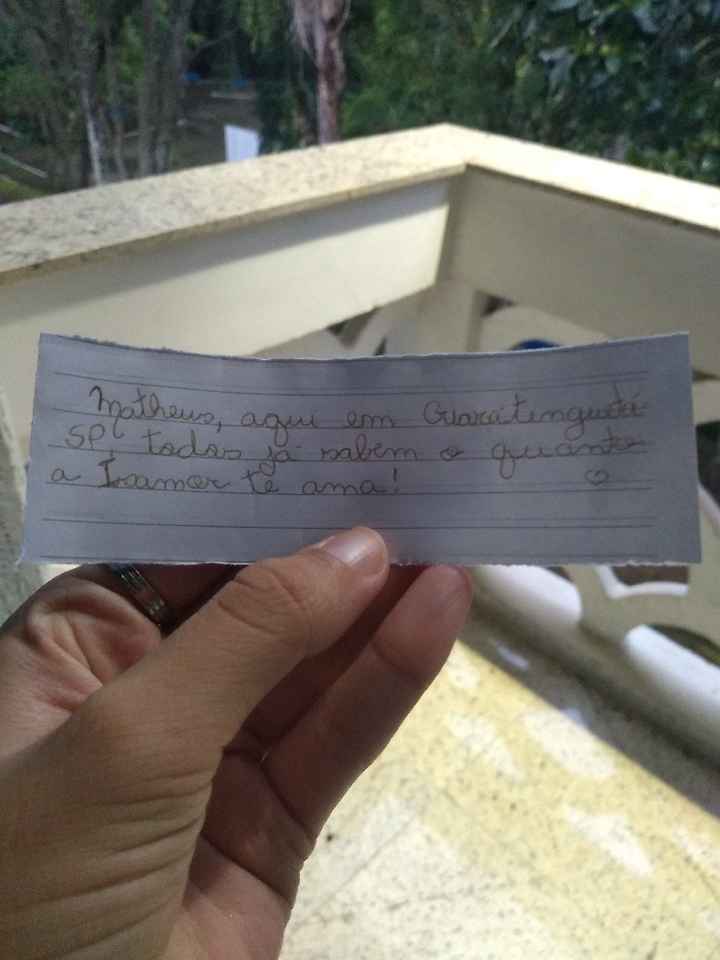 Matheus, aqui em Guaratinguetá-
SP, todos já sabem o quanto
a Isamor te ama! ♡